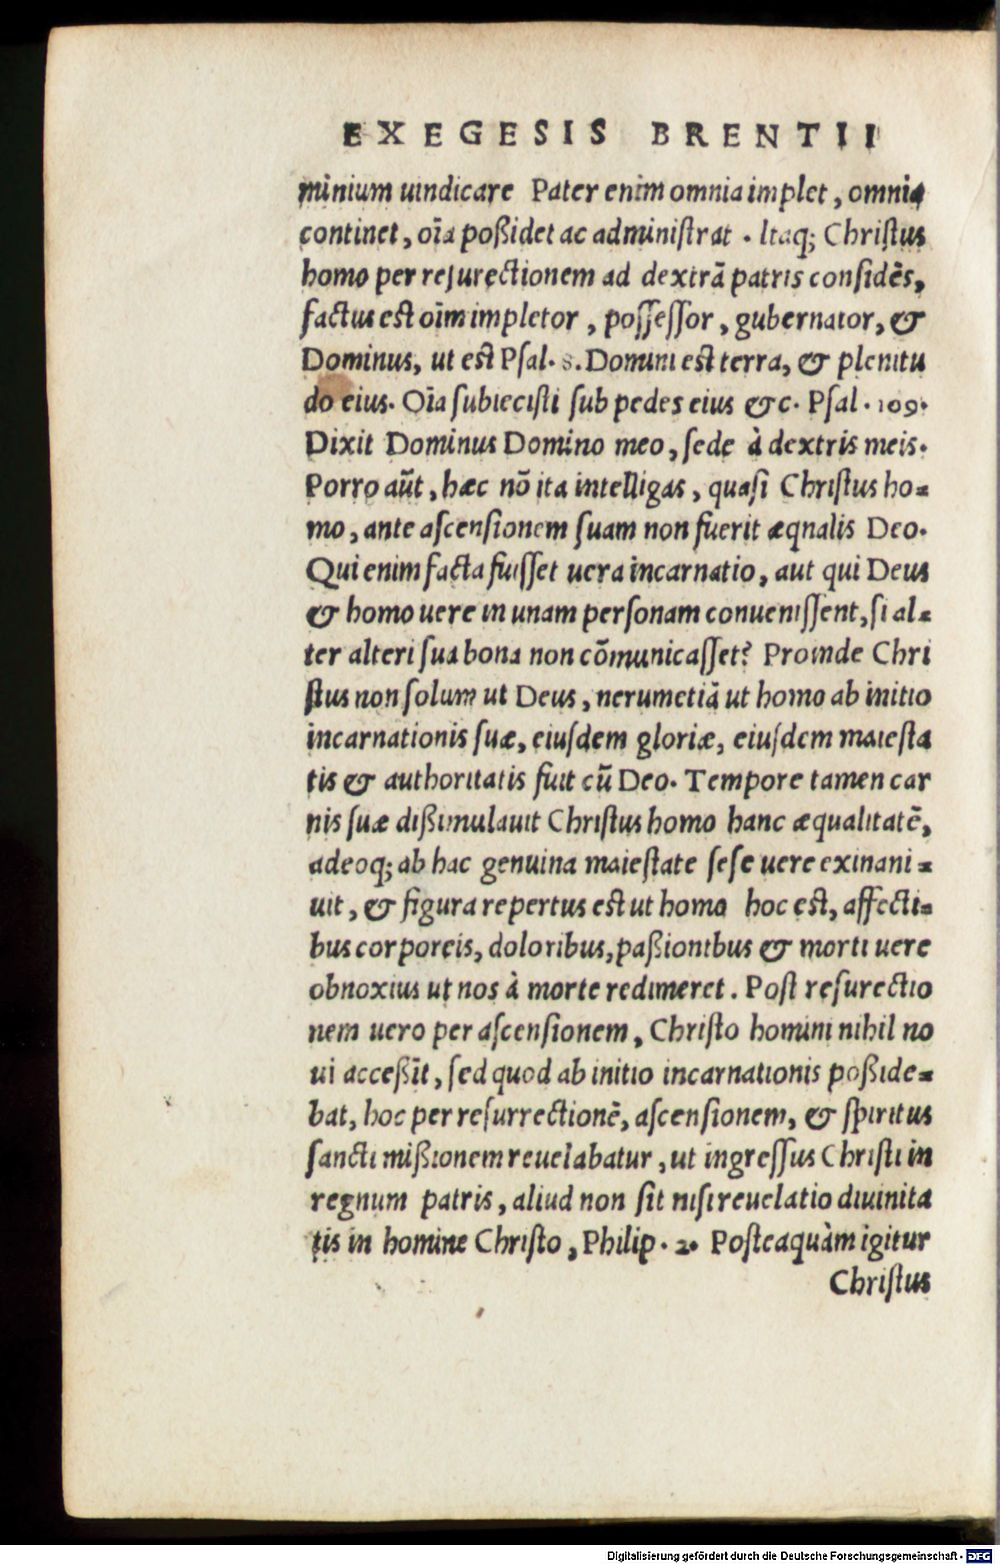 EXEGESIS BRENTII
minium uindicare Pater enim omnia implet, omnia
continet, oĩa poßidet ac adminiſtrat. Itaq; Chriſtus
homo per reſurectionem ad dextrã patris conſidẽs,
factus eſt oĩm impletor, poſſeſſor, gubernator, &
Dominus, ut eſt Pſal. 8. Domini eſt terra, & plenitu
do eius. Oĩa ſubieciſti ſub pedes eius &c. Pſal. 109.
Dixit Dominus Domino meo, ſede à dextris meis.
Porro aũt, hæc nõ ita intelligas, quaſi Chriſtus ho=
mo, ante aſcenſionem ſuam non fuerit æqnalis Deo.
Qui enim facta fuiſſet uera incarnatio, aut qui Deus
& homo uere in unam perſonam conueniſſent, ſi al=
ter alteri ſua bona non cõmunicaſſet? Proinde Chri
ſtus non ſolum ut Deus, nerumetiã ut homo ab initio
incarnationis ſuæ, eiuſdem gloriæ, eiuſdem maieſta
tis & authoritatis fuit cũ Deo. Tempore tamen car
nis ſuæ dißimulauit Chriſtus homo hanc æqualitatẽ,
adeoq; ab hac genuina maieſtate ſeſe uere exinani=
uit, & figura repertus eſt ut homo hoc eſt, affecti=
bus corporeis, doloribus, paßionibus & morti uere
obnoxius ut nos à morte redimeret. Poſt reſurectio
nem uero per aſcenſionem, Chriſto homini nihil no
ui acceßit, ſed quod ab initio incarnationis poßide=
bat, hoc per reſurrectionẽ, aſcenſionem, & ſpiritus
ſancti mißionem reuelabatur, ut ingreſſus Chriſti in
regnum patris, aliud non ſit niſi reuelatio diuinita
tis in homine Chriſto, Philip. 2. Poſteaquàm igitur
Chriſtus
Digitalisierung gefördert durch die Deutsche Forschungsgemeinschaft - DFG